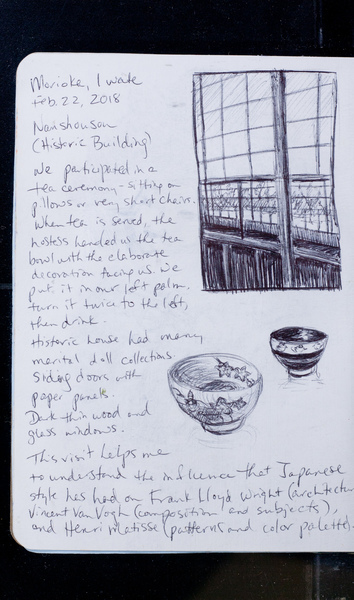 Morioka, Iwate
Feb. 22, 2018
Nanshouson
(Historic Building)
We participated in a
tea ceremony - sitting on
pillows or very short chairs.
When tea is served, the
hostess handed us the tea
bowl with the elaborate
decoration facing us. We
put it in our left palm.
turn it twice to the left,
then drink.
Historic house had many
marital doll collections.
Sliding doors with
paper panels.
Dark thin wood and
glass windows.
This visit helps me
to understand the influence that Japanese
style has had on Frank Lloyd Wright (architectur
Vincent Van Vogh (composition and subjects),
and Henri Matisse (patterns and color palette).